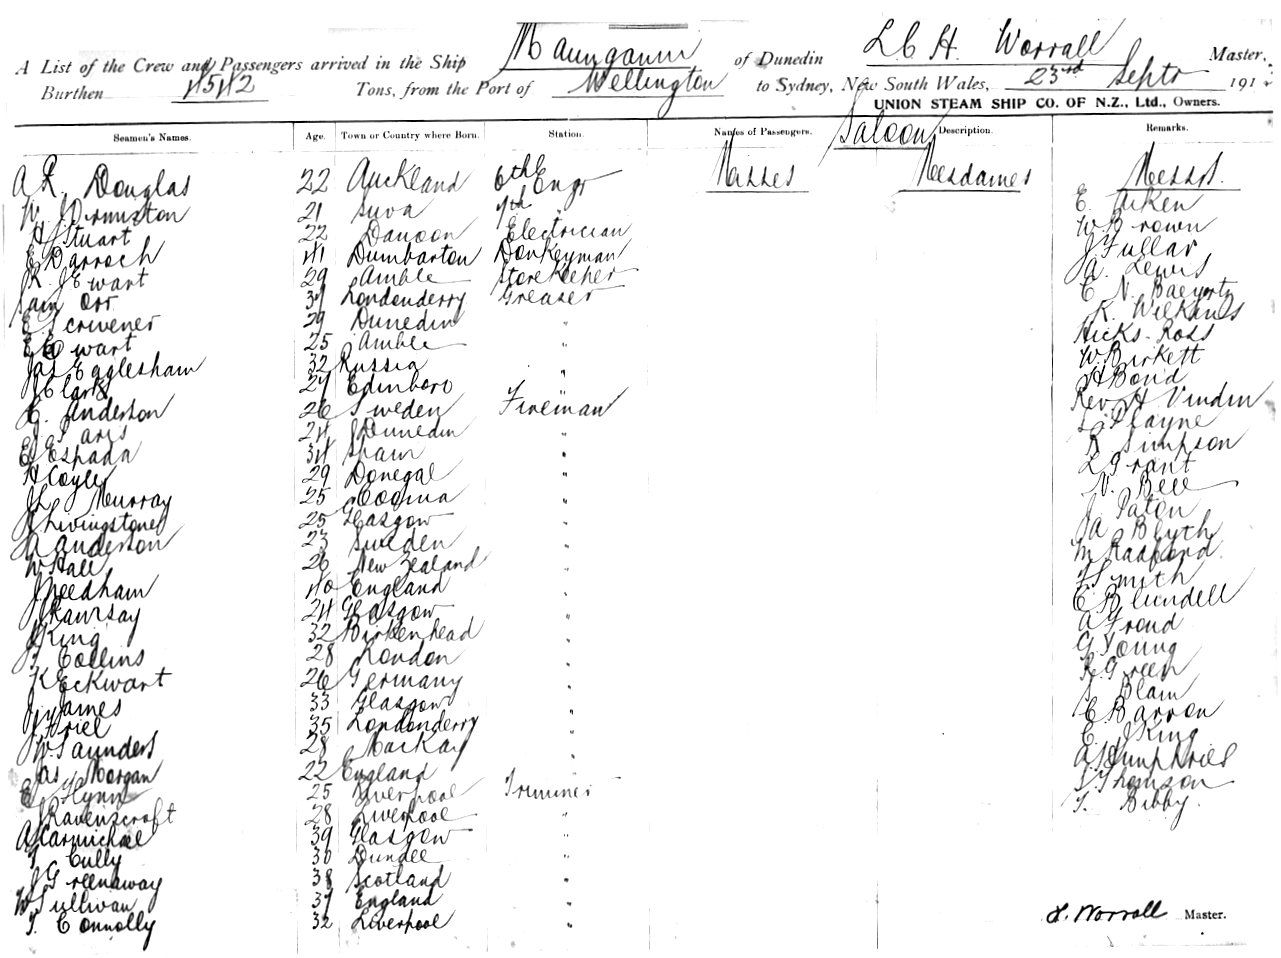 A List of the Crew and Passengers arrived in the Ship Maunganui of Dunedin L C H. Worrall Master,
Burthen 4542 Tons, from the Port of Wellington to Sydney, New South Wales, 23rd Septr 191
UNION STEAM SHIP CO. OF N.Z., Ltd., Owners.
Seamen's Names. Age. Town or Country where Born. Station. Names of Passengers. Saloon Description. Remarks.
Misses Mesdames Messrs.
A R. Douglas 22 Auckland 6th Engr E. Aiken
W. J Ormiston 21 Suva 7th " W. Brown
H Stuart 22 Dunoon Electrician J Fullar
E Darroch 41 Dumbarton Donkeyman A. Lewis
R. J Ewart 29 Amble Storekeeper C N. Baeyertz
Sam Orr 37 Londonderry Greaser R. Wilkans
E Scrivener 29 Dunedin " Hicks Ross
E Ewart 25 Amble " W. Birkett
Jas Egglesham 32 Russia " H Bond
J Clark 27 Edinboro Rev H Vindin
C. Anderson 26 Sweden Fireman L. Playne
J. Paris 24 Dunedin " R Simpson
E Espada 34 Spain " L Grant
H Coyle 29 Donegal " N. Bell
J L Murray 25 " J Paton
J Livingstone 25 Glasgow " J A Blyth
A Anderson 23 Sweden " M Radford
W Hall 26 New Zealand " F Smith
J Needham 40 England " E Blundell
J Ramsay 24 Glasgow " A Froud
J King 32 Birkenhead " G Young
T Collins 28 London " R Green
K Eckwart 26 Germany " J Blain
J James 33 Glasgow " E Barron
J Friel 35 Londonderry " E J King
W Saunders 28 Mackay " A Humphries
Jas Morgan 22 England " S Thomson
E Flynn 25 Liverpool Trimmer T. Bibby
J Ravenscroft 28 Liverpool "
A Carmichael 39 Glasgow "
T Cully 30 Dundee "
J Greenaway 38 Scotland "
W Sullivan 37 England "
T. Connolly 32 Liverpool "
H. Worrall Master.